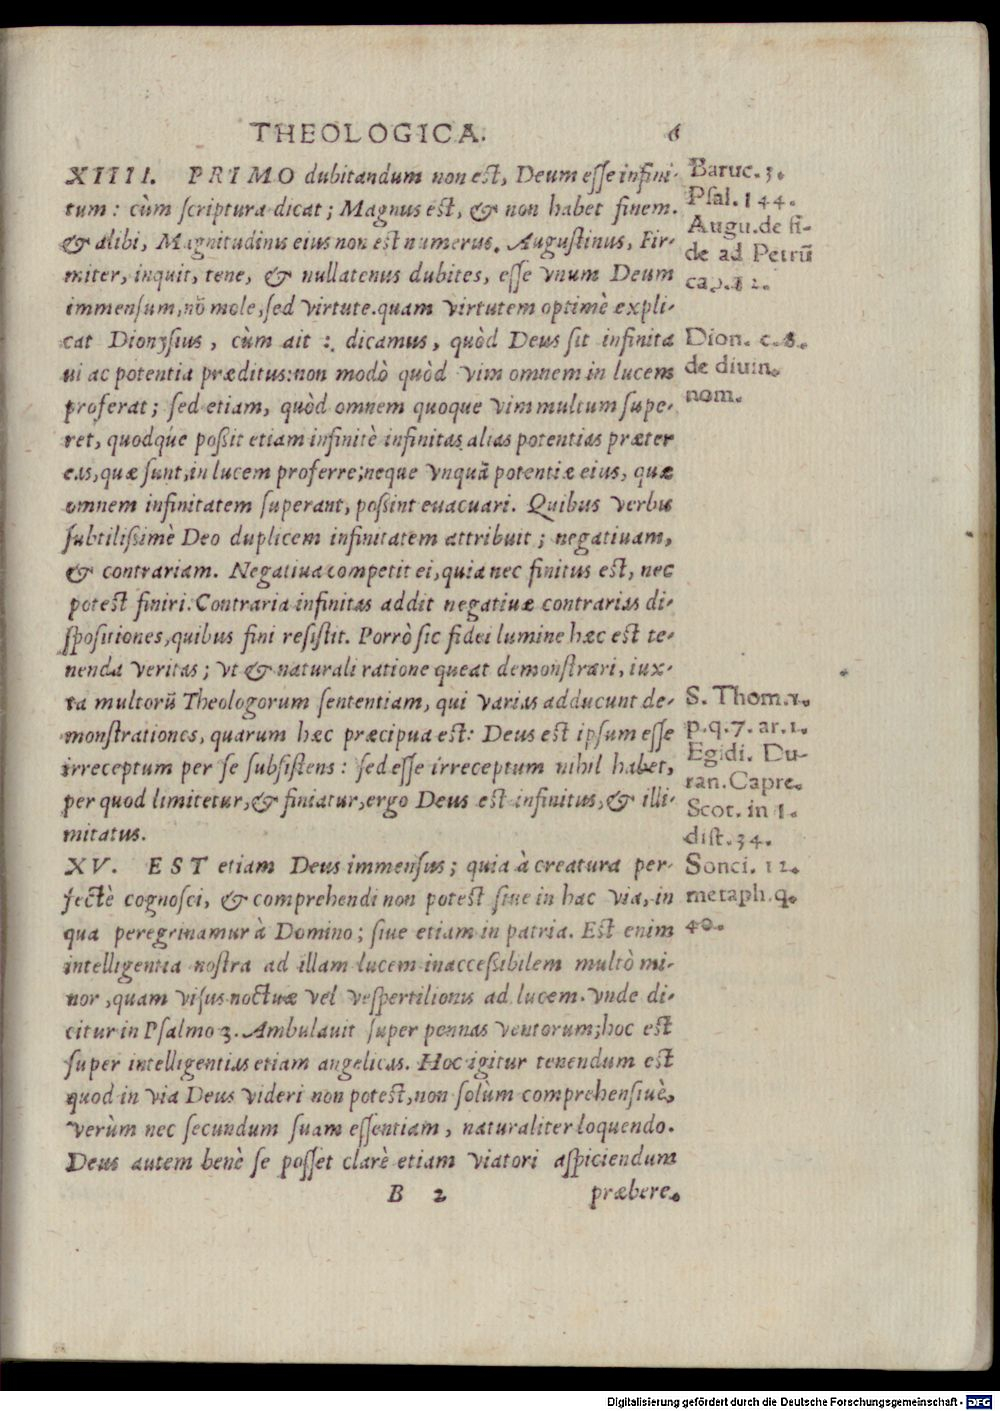 THEOLOGICA. 6
XIIII. PRIMO dubitandum non est, Deum esse infini-
tum: cùm scriptura dicat; Magnus est, & non habet finem.
& alibi, Magnitudinis eius non est numerus. Augustinus, Fir-
miter, inquit, tene, & nullatenus dubites, esse vnum Deum
immensum, nō mole, sed virtute. quam virtutem optimè expli-
cat Dionysius, cùm ait: dicamus, quòd Deus sit infinita
ui ac potentia præditus: non modò quòd vim omnem in lucem
proferat; sed etiam, quòd omnem quoque vim multum supe-
ret, quodque possit etiam infinitè infinitas alias potentias præter
eas, quæ sunt, in lucem proferre; neque vnquā potentiæ eius, quæ
omnem infinitatem superant, possint euacuari. Quibus verbis
subtilissimè Deo duplicem infinitatem attribuit; negatiuam,
& contrariam. Negatiua competit ei, quia nec finitus est, nec
potest finiri. Contraria infinitas addit negatiuæ contrarias di-
spositiones, quibus fini resistit. Porrò sic fidei lumine hæc est te-
nenda veritas; vt & naturali ratione queat demonstrari, iux-
ta multorū Theologorum sententiam, qui varias adducunt de-
monstrationes, quarum hæc præcipua est: Deus est ipsum esse
irreceptum per se subsistens: sed esse irreceptum nihil habet,
per quod limitetur, & finiatur, ergo Deus est infinitus, & illi-
mitatus.
XV. EST etiam Deus immensus; quia à creatura per-
fectè cognosci, & comprehendi non potest siue in hac via, in
qua peregrinamur à Domino; siue etiam in patria. Est enim
intelligentia nostra ad illam lucem inaccessibilem multò mi-
nor, quam visus noctuæ vel vespertilionis ad lucem. vnde di-
citur in Psalmo 3. Ambulauit super pennas ventorum; hoc est
super intelligentias etiam angelicas. Hoc igitur tenendum est
quod in via Deus videri non potest, non solùm comprehensiuè,
verùm nec secundum suam essentiam, naturaliter loquendo.
Deus autem benè se posset clarè etiam viatori aspiciendum
B 2 præbere.
Baruc. 3.
Psal. 144.
Augu. de fi-
de ad Petrū
cap. 12.
Dion. c. 8.
de diuin.
nom.
S. Thom. 1.
p. q. 7. ar. 1.
Egidi. Du-
ran. Capre.
Scot. in 1.
dist. 34.
Sonci. 12.
metaph. q.
40.
Digitalisierung gefördert durch die Deutsche Forschungsgemeinschaft - DFG